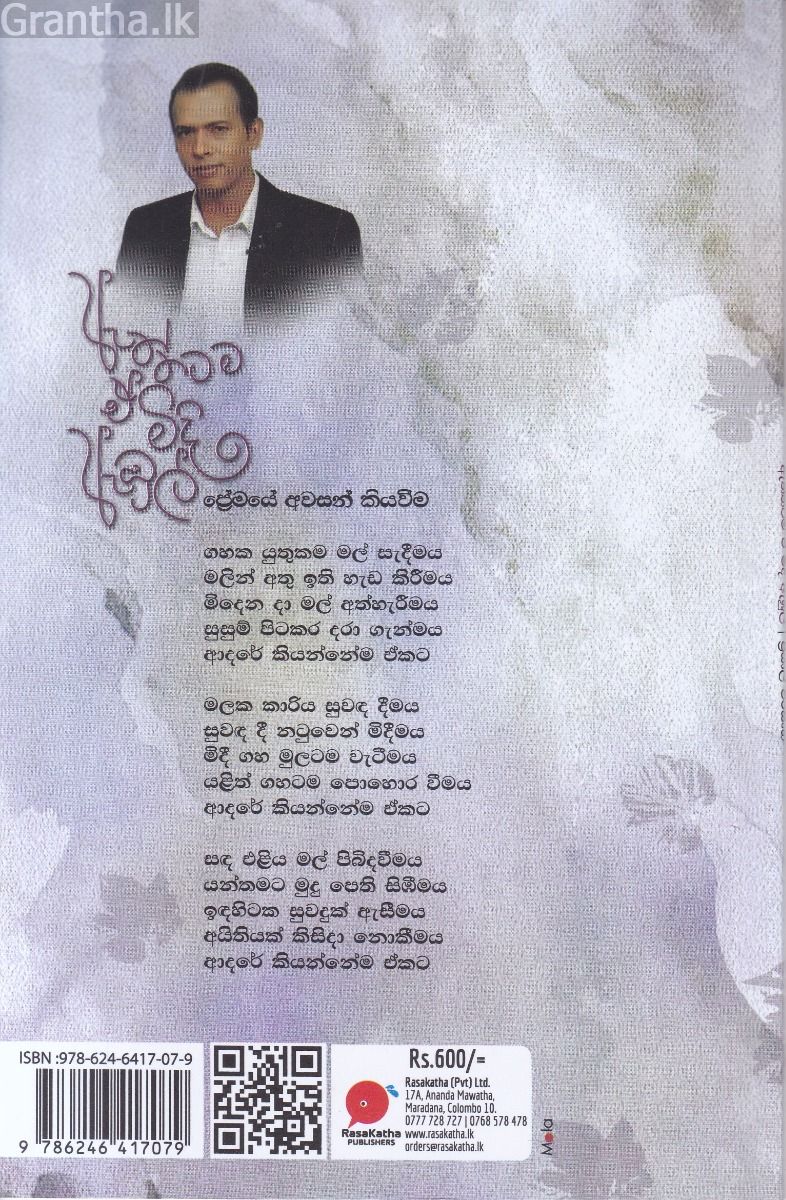 Grantha.lk
ඇත්තටම
ඒයි
මදි
ඇඹුල
ප්‍රේමයේ අවසන් කියවීම
ගහක යුතුකම මල් සැදීමය
මලින් අතු ඉති හැඩ කිරීමය
මිදෙන දා මල් අත්හැරීමය
සුසුම් පිටකර දරා ගැන්මය
ආදරේ කියන්නේම ඒකට
මලක කාරිය සුවඳ දීමය
සුවඳ දී නටුවෙන් මිදීමය
මිදී ගහ මුලටම වැටීමය
යළිත් ගහටම පොහොර වීමය
ආදරේ කියන්නේම ඒකට
සඳ එළිය මල් පිබිදවීමය
යන්තමට මුදු පෙති සිඹීමය
ඉඳහිටක සුවදුක් ඇසීමය
අයිතියක් කිසිදා නොකීමය
ආදරේ කියන්නේම ඒකට
ISBN :978-624-6417-07-9
9 786246 417079
RasaKatha
PUBLISHERS
Rs.600/=
Rasakatha (Pvt) Ltd.
17A, Ananda Mawatha,
Maradana, Colombo 10.
0777 728 727 | 0768 578 478
www.rasakatha.lk
orders@rasakatha.lk
Mota